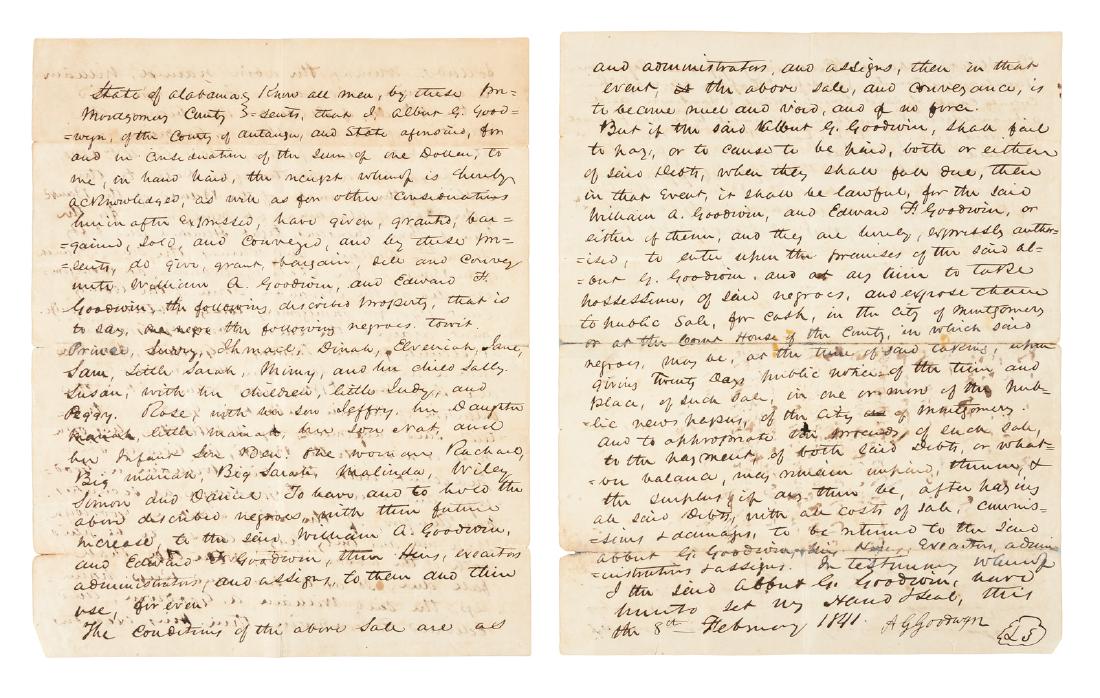 State of Alabama } Know all men, by these Pre-
Montgomery County } =sents, that I, Albert G. Good-
=wyn, of the County of Autauga, and State aforesaid, for
and in Consideration of the Sum of one Dollar, to
me, in hand paid, the receipt whereof is hereby
acknowledged, as well as for other Considerations
herein after expressed, have given, granted, bar-
=gained, sold, and Conveyed, and by these pre-
=sents, do give, grant, bargain, sell and Convey
unto William A. Goodwin, and Edward F.
Goodwin, the following described property, that is
to say, the following negroes. towit.
Prince, Ishmael, Dinah, Jane,
Sam, Little Sarah, Mimy, and her child Sally.
Susan, with her children, little Judy, and
Peggy. Rose, with her son Jeffry. her Daughter
little mariah, her Son Nat, and
her Infant Son Ben. the woman Rachael,
Big mariah, Big Sarah, Malinda, Wiley
Simon and Daniel. To have and to hold the
above described negroes, with their future
increase, to the said William A. Goodwin,
and Edward Goodwin, their Heirs, executors
administrators, and assigns, to them and their
use, for ever.
The Conditions of the above Sale are as
and administrators, and assigns, then in that
event the above sale, and conveyance, is
to become null and void, and of no force.
But if the said Albert G. Goodwin, shall fail
to pay, or to cause to be paid, both or either
of said Debts, when they shall fall due, then
in that Event, it shall be lawful, for the said
William A. Goodwin, and Edward F. Goodwin, or
either of them, and they are hereby, expressly author-
=ised, to enter upon the premises of the said Al-
=bert G. Goodwin. and at any time to take
possession, of said negroes, and expose them
to public Sale, for cash, in the City of Montgomery
or at the Court House of the County, in which said
negroes, may be, at the time of said taking, upon
giving Twenty Days public notice of the time and
place, of such sale, in one or more of the Pub-
=lic news papers, of the City of Montgomery.
and to appropriate the proceeds, of such sale,
to the payment, of both said Debts, or what-
=ever balance, may remain unpaid, thereon, &
the surplus if any there be, after paying
all said Debts, with all costs of sale, Commis-
=sions & damages, to be returned to the said
Albert G. Goodwin, his Heirs, Executors, admin
=istrators & assigns. In testimony whereof
I the said Albert G. Goodwin, have
hereunto set my Hand & seal, this
the 8th February 1841. A G Goodwyn
L S